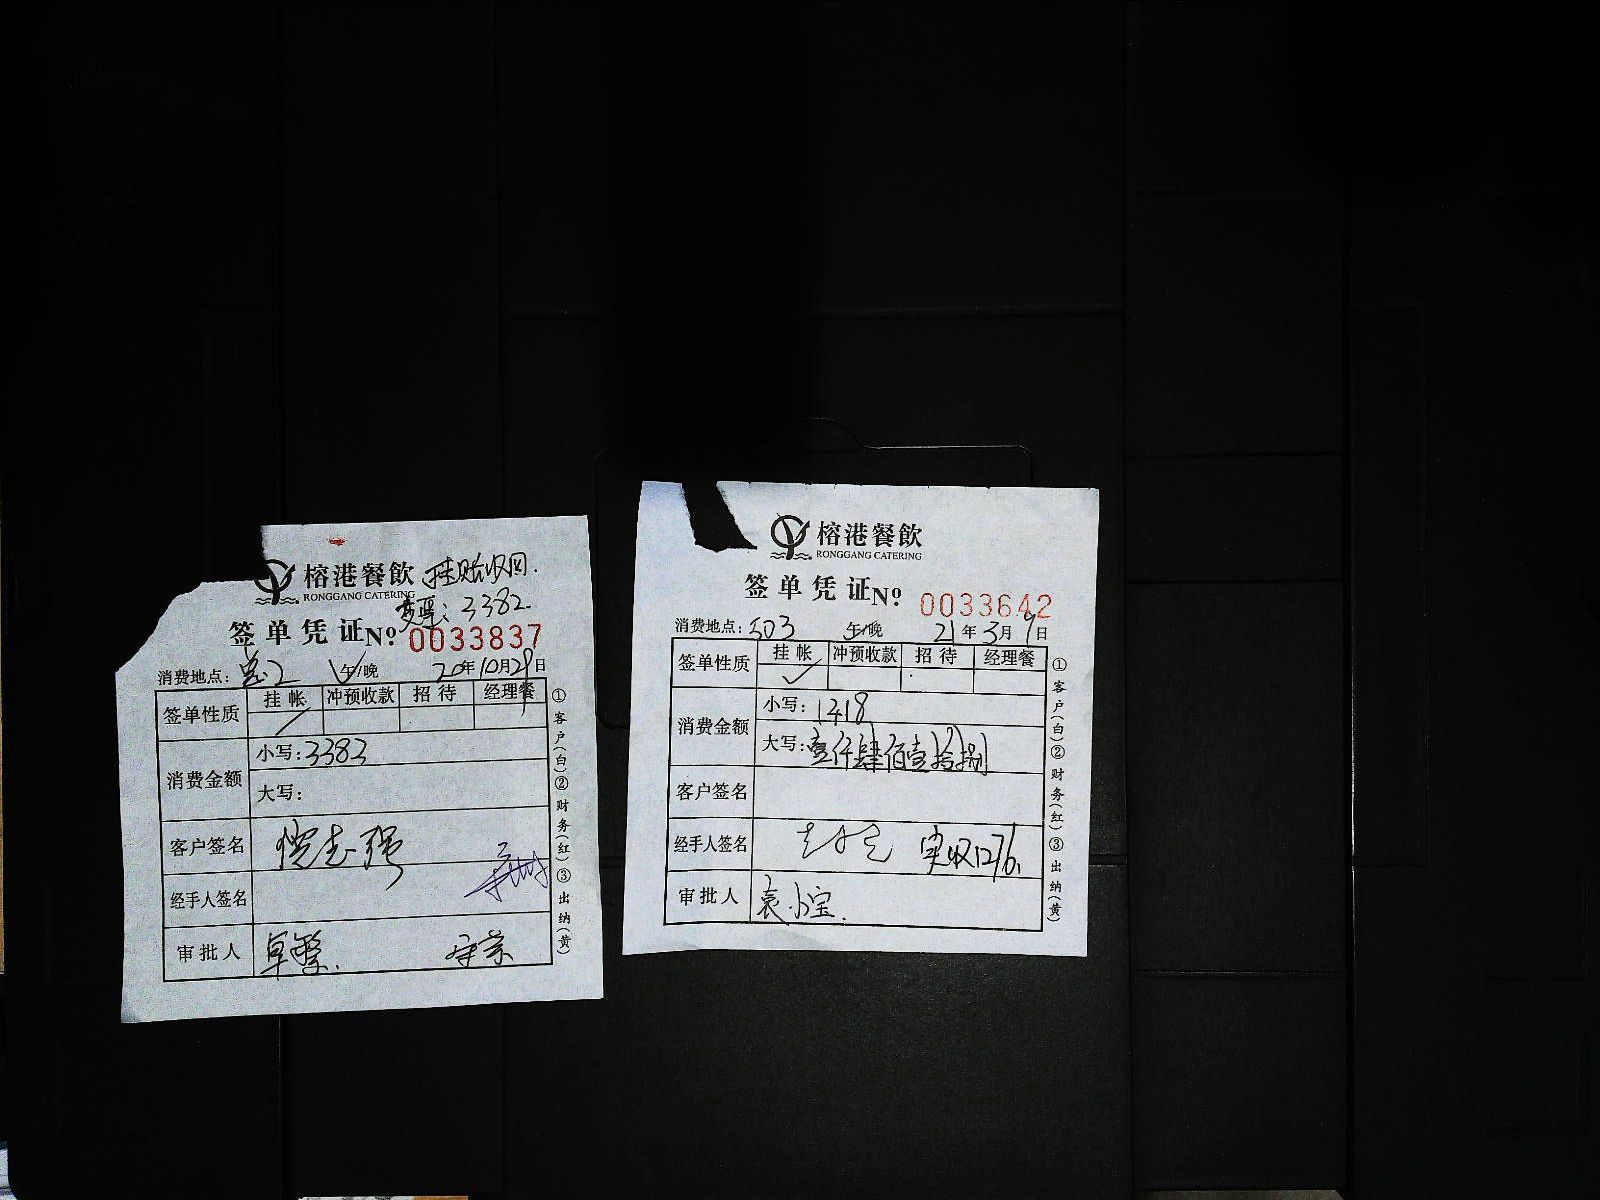 榕港餐飲 挂账收回.
RONGGANG CATERING
3382.
签单凭证 No 0033837
消费地点: 午/晚 20年10月29日
签单性质 挂帐 冲预收款 招待 经理餐
消费金额 小写: 3382
大写:
客户签名 倪志强
经手人签名
审批人
①客户(白)②财务(红)③出纳(黄)
榕港餐飲
RONGGANG CATERING
签单凭证 No 0033642
消费地点: 503 午/晚 21年3月9日
签单性质 挂帐 冲预收款 招待 经理餐
✓
消费金额 小写: 1418
大写: 壹仟肆佰壹拾捌
客户签名
经手人签名 实收1276.
审批人 袁小宝.
①客户(白)②财务(红)③出纳(黄)